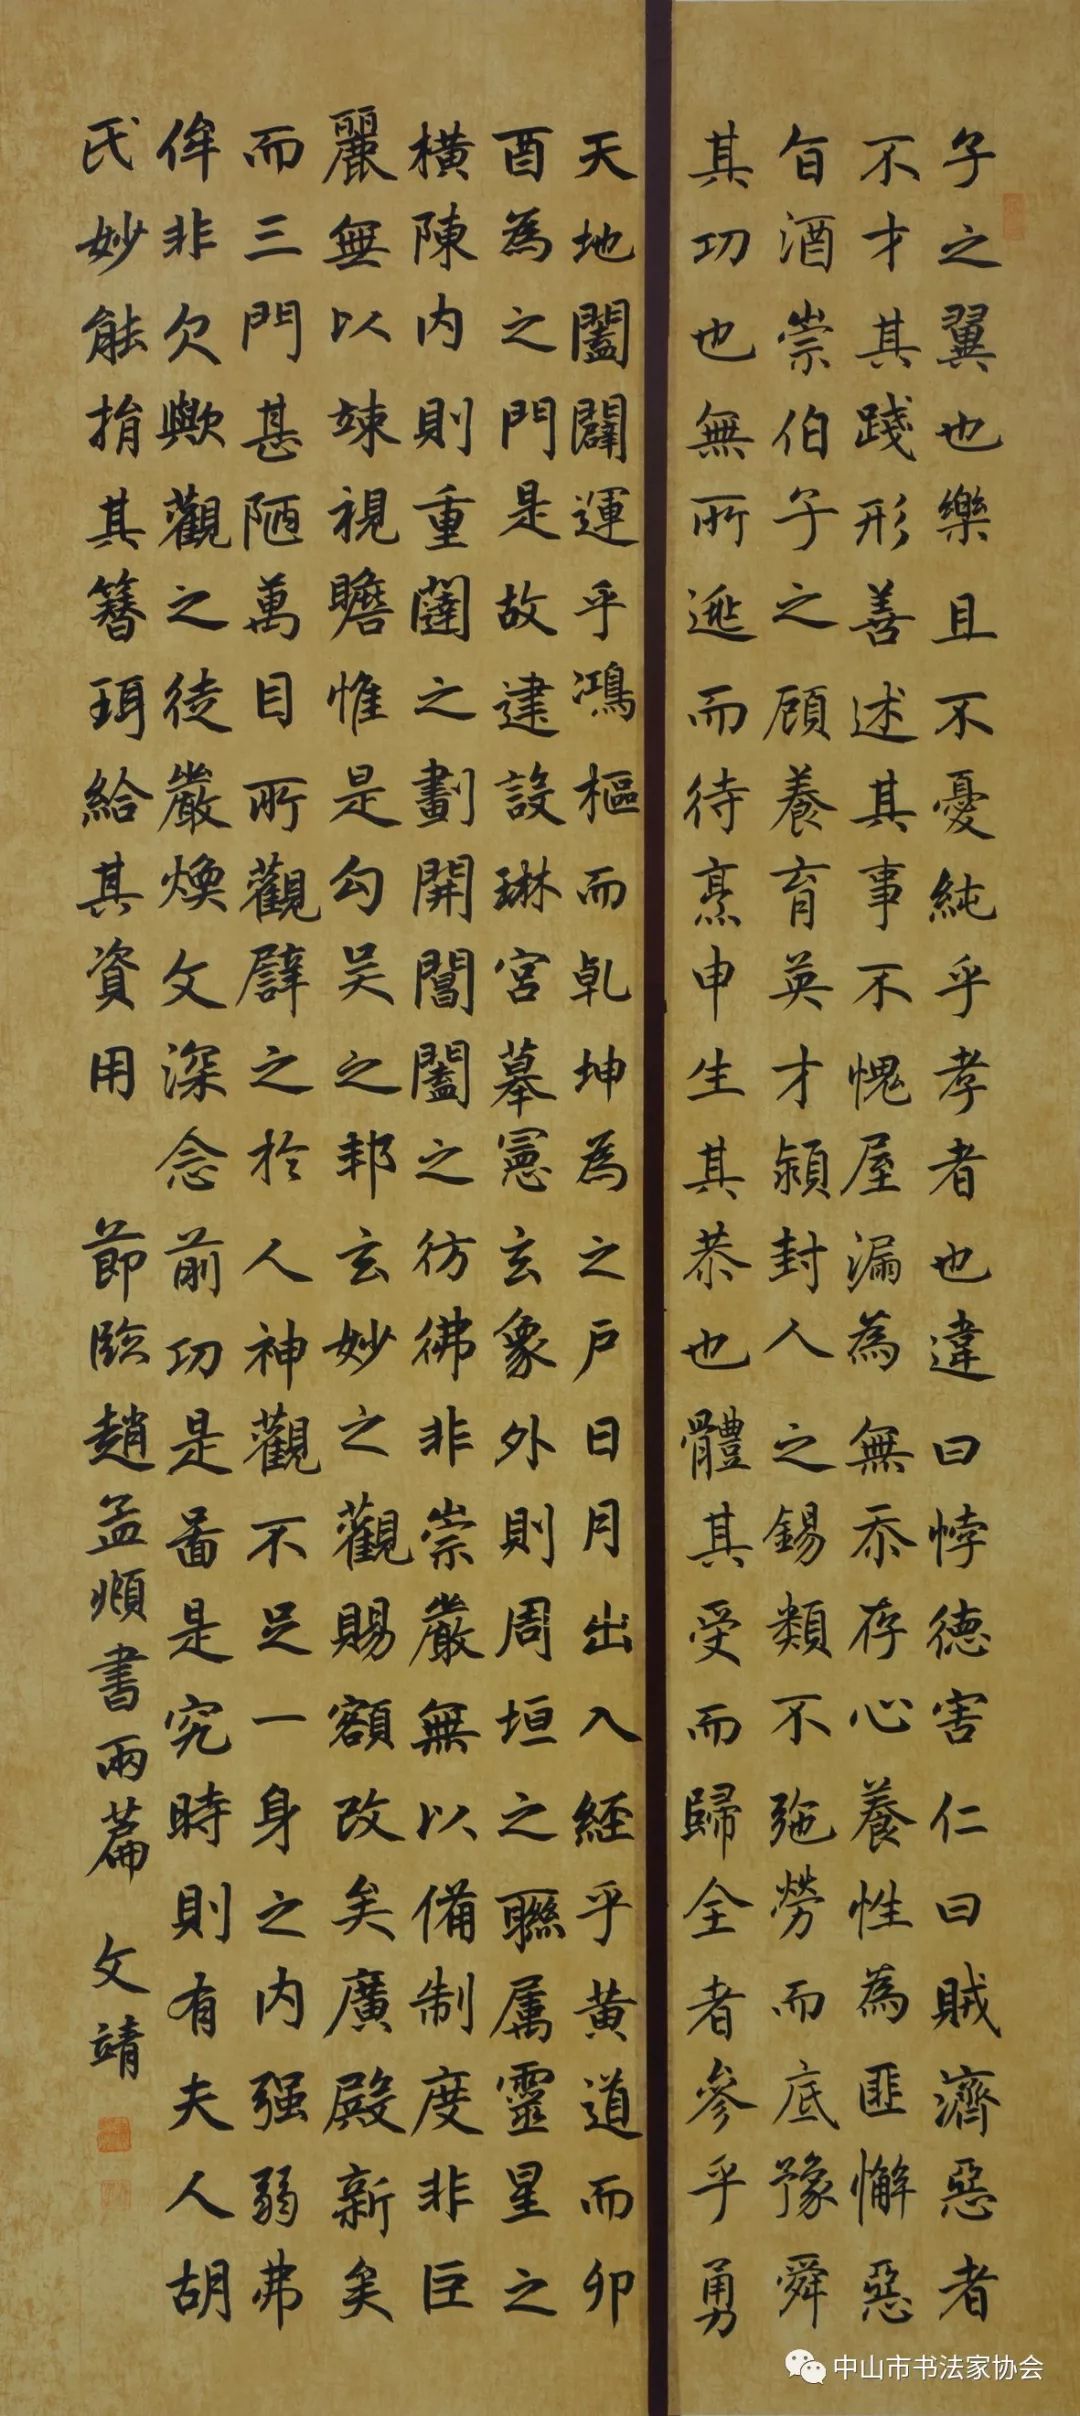 子之翼也樂且不憂純乎孝者也違曰悖德害仁曰賊濟惡者
不才其其踐形善述其事不愧屋漏為無忝存心養性為匪懈惡
旨酒崇伯子之顧養育英才潁封人之錫類不弛勞而底豫舜
其功也無所逃而待烹申生其恭也體其受而歸全者參乎勇
天地闔闢運乎鴻樞而乹坤為之戶日月出入經乎黃道而卯
酉為之門是故建設琳宮摹憲玄象外則周垣之聯属靈星之
橫陳内則重闥之劃開閶闔之彷彿非崇嚴無以備制度非巨
麗無以竦視瞻惟是勾吳之邦玄妙之觀賜額改矣廣殿新矣
而三門甚陋萬目所觀辟之於人神觀不足一身之内强弱弗
侔非欠歟觀之徒嚴煥文深念前功是啚是究時則有夫人胡
氏妙能捐其簪珥給其資用 節臨趙孟頫書兩篇 文靖
中山市书法家协会